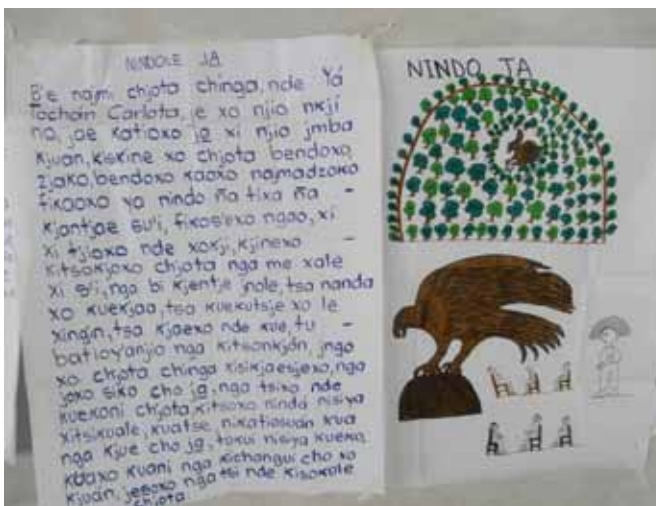 NINDOLE JA
B'e najmi chjota chinga, nde Yá
Tochoin Carlota, je xo njio nkji
na, joe katioxo ja xi njio jmba
kjuan, kiskine xo chjota bendoxo,
zjako, bendoxo kaoxo najmadzoko
fikaoxo ya nindo ña tixa ña -
kjantjae su'i, fikos'exo ngao, xi
xi tjioxo nde xokji, kjinexo -
kitsokjoxo chjota nga me xale
xi s'i, nga bi kjentje jnole, tsa nanda
xo kuekjaa, tsa kuekutsje xo le
xingin, tsa kjaexo nde kue, tu -
batioyanjio nga kitsonkjón, jngo
xo chjota chinga kisikjaesjexo, nga
joxo siko cho ja, nga tsixo nde
kuekoni chjota, kitsoxo nindá nisiya
xitsikuale, kuatse, nikatiosuan kua
nga kjue cho ja, tokui nisiya kuexo,
kuaxo kuani nga kichangui cho xo
kjuán, jesoxo nga tsi nde kisokole
chjota
NINDO JA